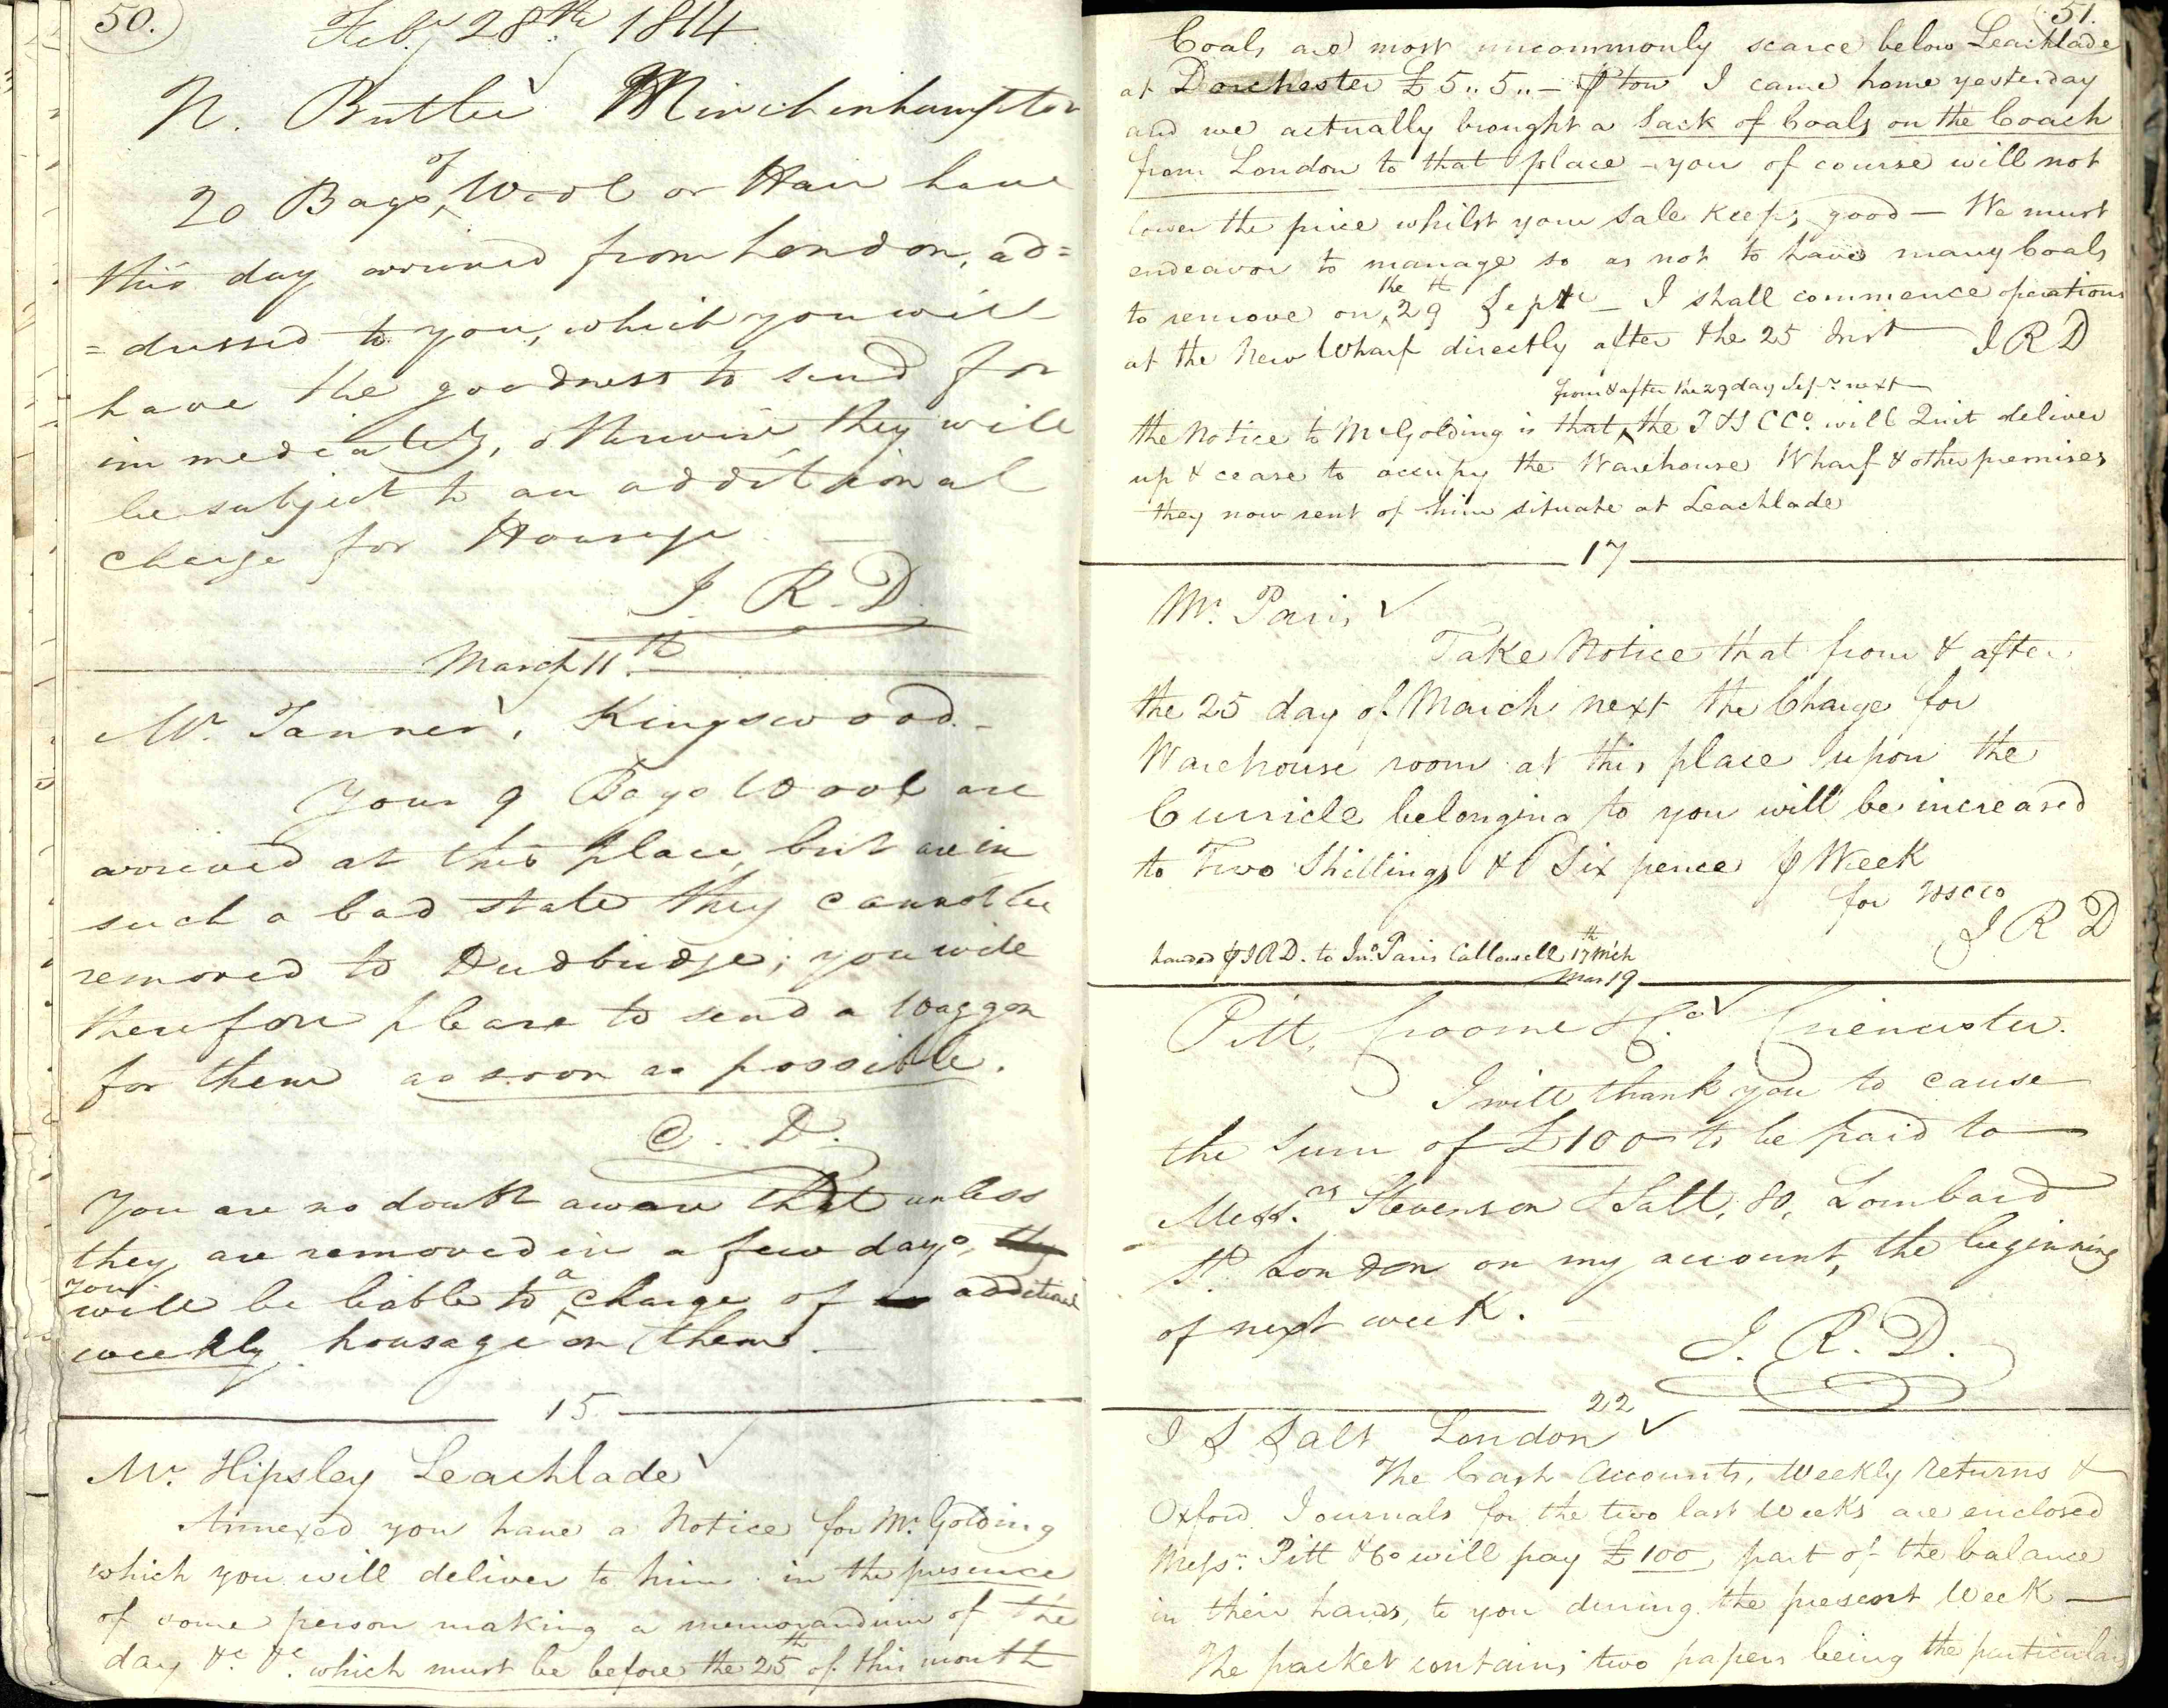 50.
Feby 28th 1814
N. Butler Minchinhampton
20 Bags of Wool or Hair have
this day arrived from London, ad=
=dressed to you, which you will
have the goodness to send for
immediately, otherwise they will
be subject to an additional
charge for Housage
J. R. D.
March 11th
Mr. Tanner, Kingswood -
Your 9 Bags Wool are
arrived at this place, but are in
such a bad state they cannot be
removed to Dudbridge; you will
therefore please to send a Waggon
for them as soon as possible.
C. D.
You are no doubt aware that unless
they are removed in a few days, they
you
will be liable to a charge of additional
weekly housage on them. -
15
Mr. Hipsley Leachlade
Annexed you have a Notice for Mr. Golding
which you will deliver to him in the presence
of some person making a memorandum of the
day &c. &c. which must be before the 25th of this month
51.
Coals are most uncommonly scarce below Leachlade
at Dorchester £5..5..- ⅌ ton I came home yesterday
and we actually brought a Sack of Coals on the Coach
from London to that place - you of course will not
lower the price whilst your Sale keeps good - We must
endeavor to manage so as not to have many Coals
to remove on the 29th Sept - I shall commence operations
at the New Wharf directly after the 25 Inst J R D
from & after the 29 day Sepr. next
the Notice to Mr Golding is that the T & S C Co. will Quit deliver
up & cease to occupy the Warehouse Wharf & other premises
they now rent of him situate at Leachlade
17
Mr. Paris
Take Notice that from & after
the 25 day of March next the Charge for
Warehouse room at this place upon the
Curricle belonging to you will be increased
to Two Shillings & Six pence ⅌ Week
for TSCCo
J R D
handed ⅌ J R D. to Jno. Paris Callowell 17th Mch
Mar 19
Pitt, Croome & Co. Cirencester.
I will thank you to cause
the Sum of £100 to be paid to
Messrs. Stevenson & Salt, 80, Lombard
St. London on my account, the beginning
of next week.
J. R. D.
22
J S Salt London
The Cash Accounts, Weekly Returns &
Oxford Journals for the two last Weeks are enclosed
Messrs. Pitt & Co will pay £100, part of the balance
in their hands, to you during the present Week -
The packet contains two papers being the particulars